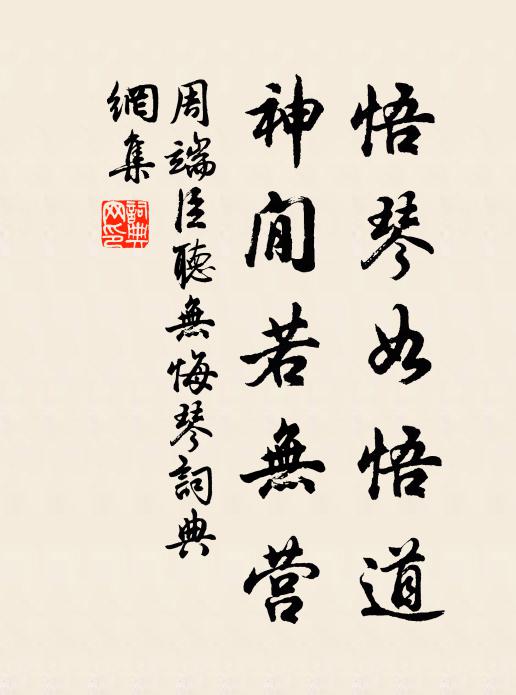 悟琴如悟道
神閒若無营
周端臣聽無悔琴詞典
網集
詞典
网印